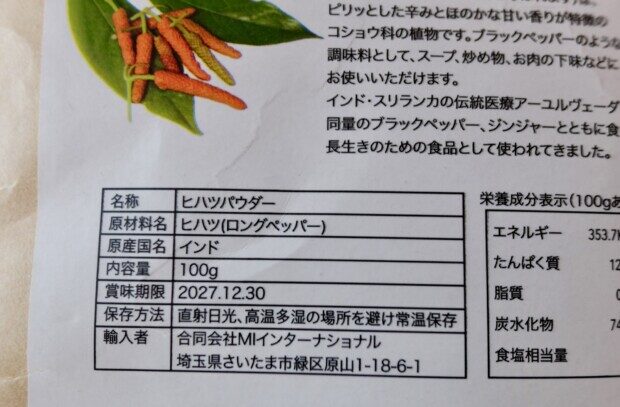 ピリッとした辛みとほのかな甘い香りが特徴の
コショウ科の植物です。ブラックペッパーのような
調味料として、スープ、炒め物、お肉の下味などに
お使いいただけます。
インド・スリランカの伝統医療アーユルヴェーダ
同量のブラックペッパー、ジンジャーとともに食
長生きのための食品として使われてきました。
名称 ヒハツパウダー
原材料名 ヒハツ(ロングペッパー)
原産国名 インド
内容量 100g
賞味期限 2027.12.30
保存方法 直射日光、高温多湿の場所を避け常温保存
輸入者 合同会社MIインターナショナル
埼玉県さいたま市緑区原山1-18-6-1
栄養成分表示(100gあ
エネルギー 353.7k
たんぱく質 12
脂質
炭水化物 74
食塩相当量